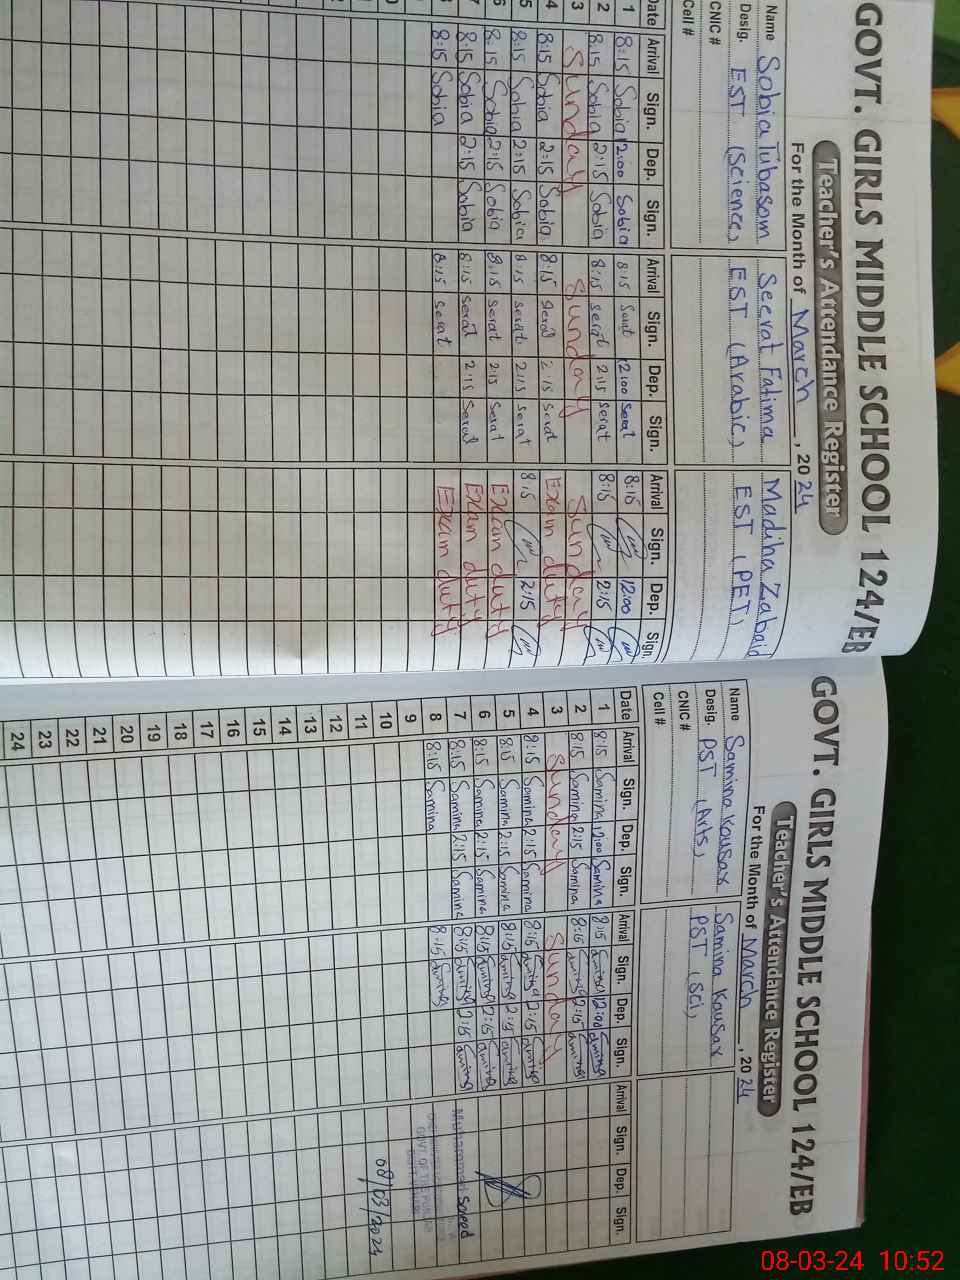 GOVT. GIRLS MIDDLE SCHOOL 124/EB
Teacher's Attendance Register
For the Month of March, 2024
Name Sobia Tubasom Seerat Fatima Madiha Zabaid
Desig. EST (Science) EST (Arabic) EST (PET)
CNIC #
Cell #
Date Arrival Sign. Dep. Sign. Arrival Sign. Dep. Sign. Arrival Sign. Dep. Sign.
1 8:15 Sobia 12:00 Sobia 8:15 Serat 12:00 Serat 8:15 12:00
2 8:15 Sobia 2:15 Sobia 8:15 Serat 2:15 Serat 8:15 2:15
3 Sunday Sunday Sunday
4 8:15 Sobia 2:15 Sobia 8:15 Serat 2:15 Serat Exam duty
5 8:15 Sobia 2:15 Sobia 8:15 Serat 2:15 Serat 8:15 2:15
6 8:15 Sobia 2:15 Sobia 8:15 Serat 2:15 Serat Exam duty
7 8:15 Sobia 2:15 Sobia 8:15 Serat 2:15 Serat Exam duty
8 8:15 Sobia 8:15 Serat Exam duty
GOVT. GIRLS MIDDLE SCHOOL 124/EB
Teacher's Attendance Register
For the Month of March, 2024
Name Samina Kousar Samina Kousar
Desig. PST (Arts) PST (Sci)
CNIC #
Cell #
Date Arrival Sign. Dep. Sign. Arrival Sign. Dep. Sign. Arrival Sign. Dep. Sign.
1 8:15 Samina 12:00 Samina 8:15 Samina 12:00 Samina
2 8:15 Samina 2:15 Samina 8:15 Samina 2:15 Samina
3 Sunday Sunday
4 8:15 Samina 2:15 Samina 8:15 Samina 2:15 Samina
5 8:15 Samina 2:15 Samina 8:15 Samina 2:15 Samina
6 8:15 Samina 2:15 Samina 8:15 Samina 2:15 Samina
7 8:15 Samina 2:15 Samina 8:15 Samina 2:15 Samina
8 8:15 Samina 8:15 Samina
Muhammad Saeed
GOVT. OF THE PUNJAB
9
10 08/03/2024
11
12
13
14
15
16
17
18
19
20
21
22
23
24
08-03-24 10:52